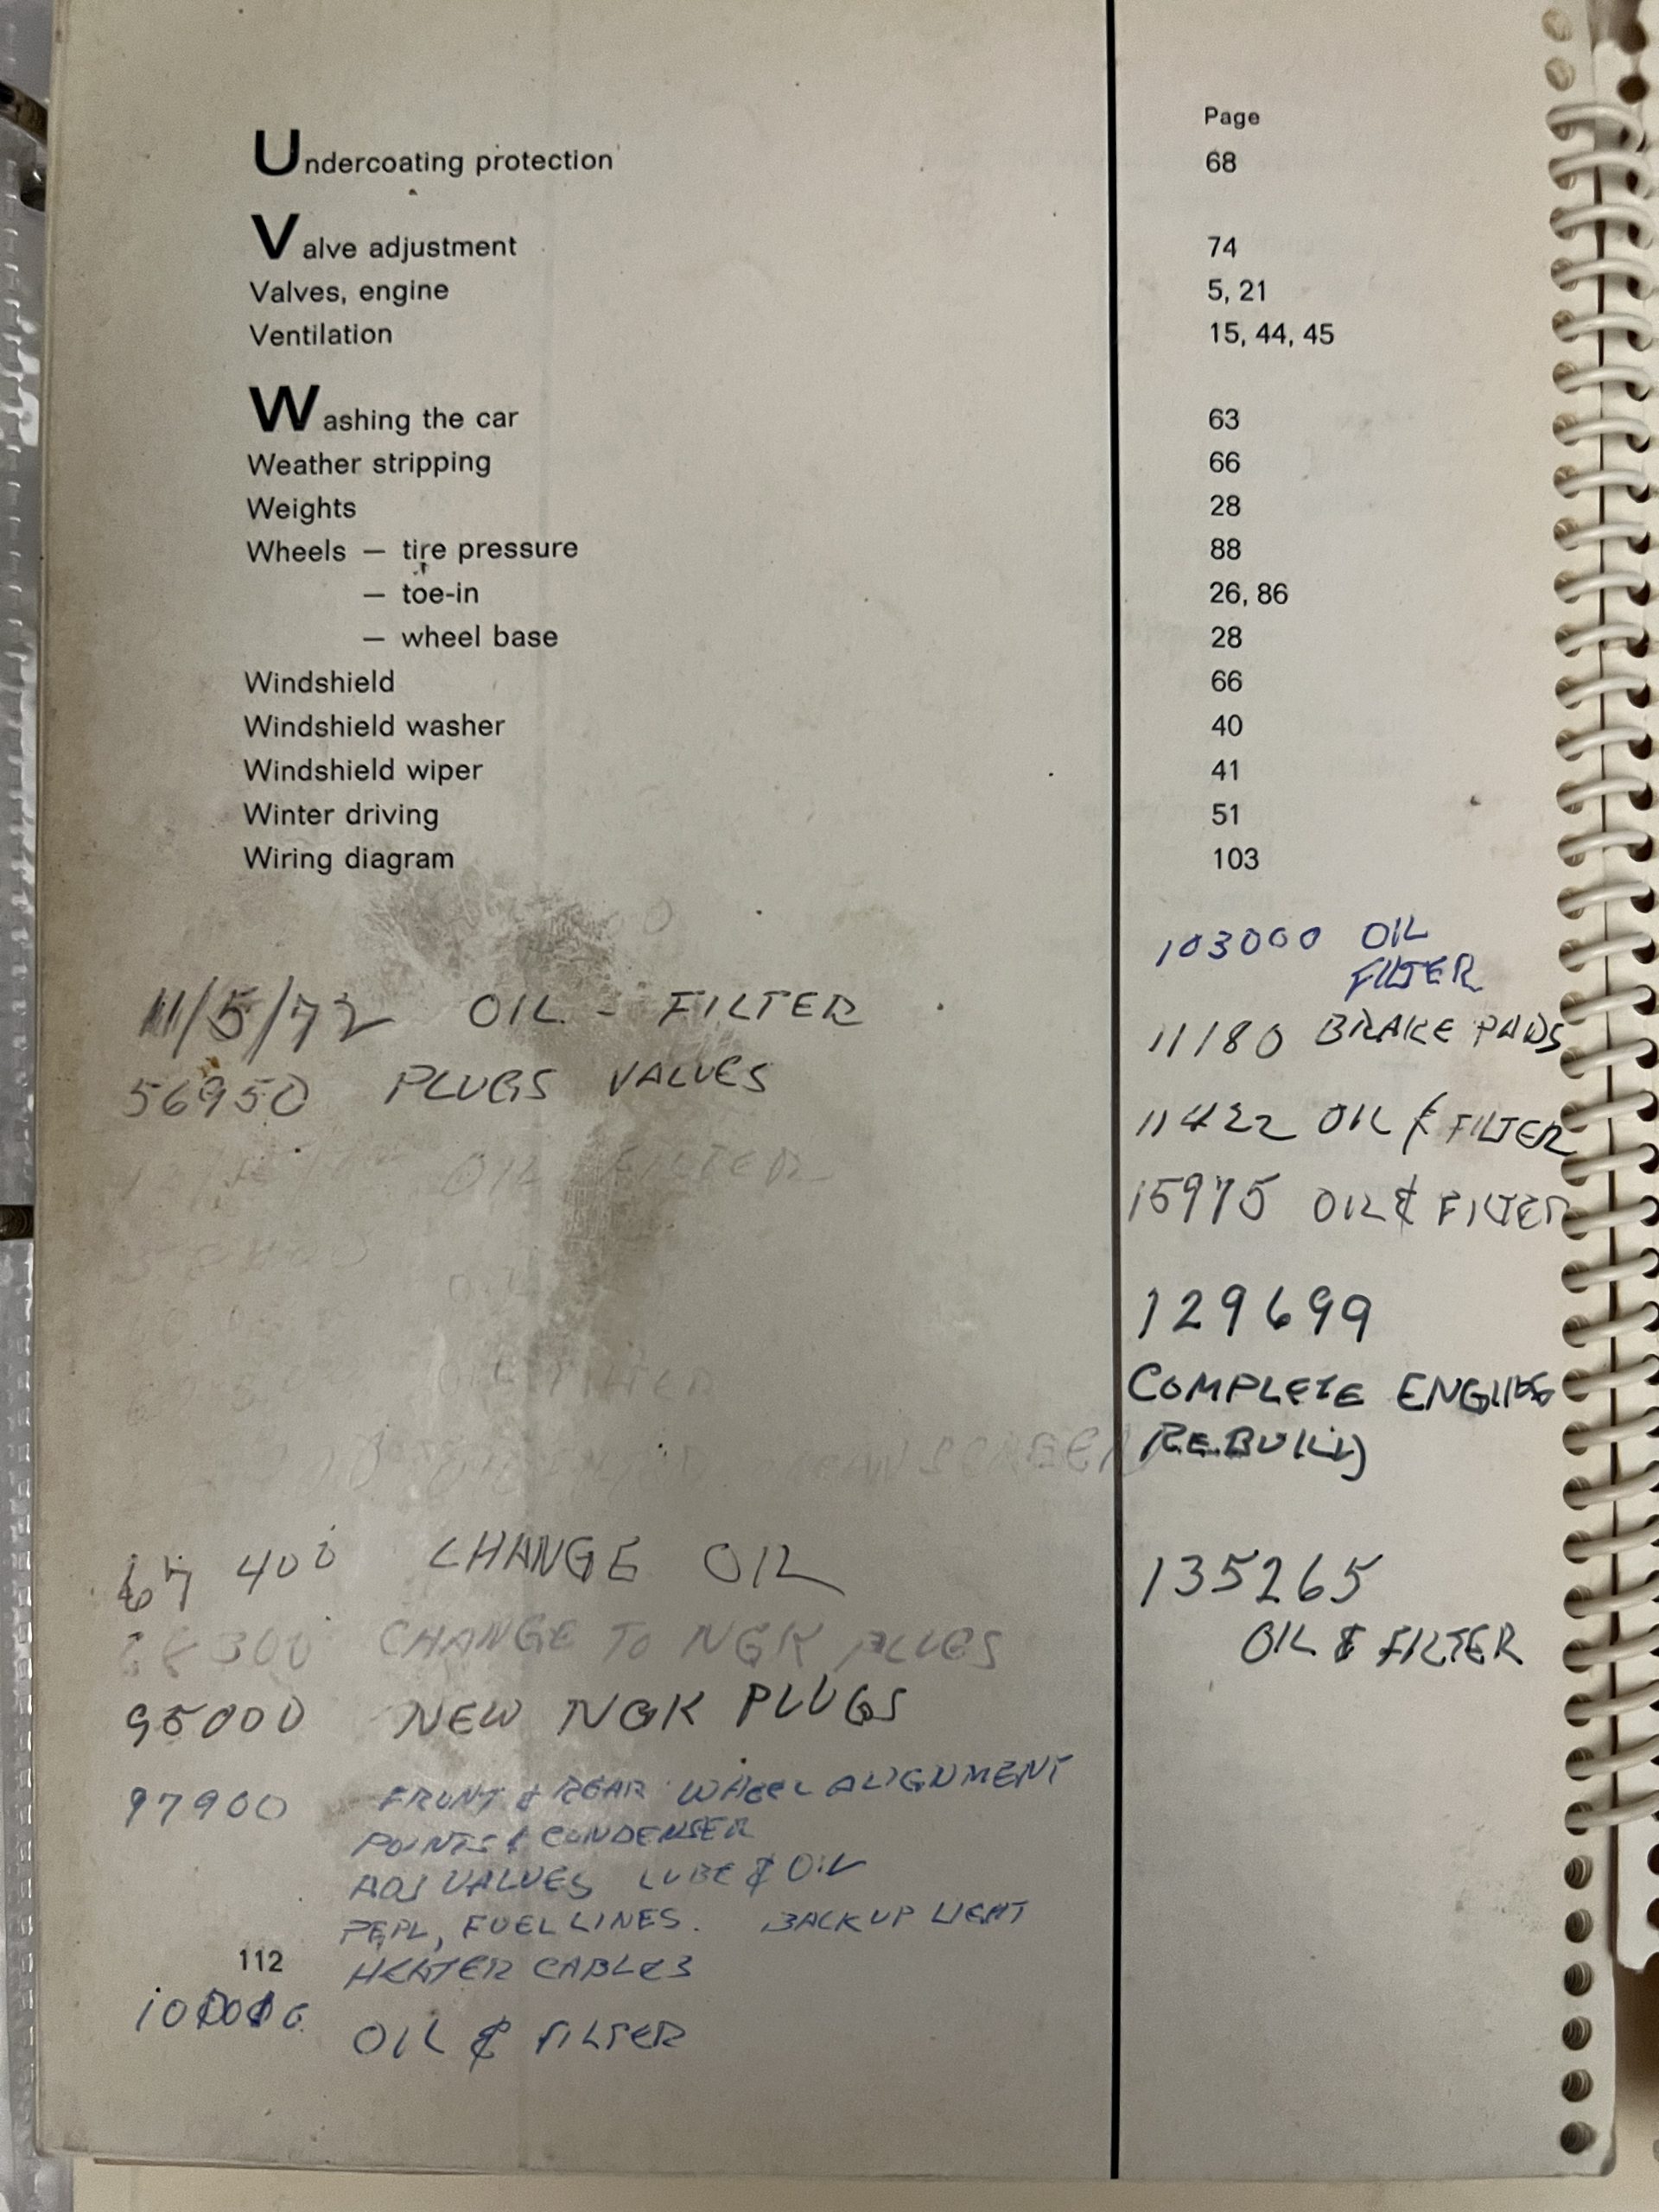 Page
Undercoating protection 68
Valve adjustment 74
Valves, engine 5, 21
Ventilation 15, 44, 45
Washing the car 63
Weather stripping 66
Weights 28
Wheels — tire pressure 88
— toe-in 26, 86
— wheel base 28
Windshield 66
Windshield washer 40
Windshield wiper 41
Winter driving 51
Wiring diagram 103
11/5/72 OIL - FILTER
56950 PLUGS VALVES
OIL FILTER
OIL
OIL FILTER
67 400 CHANGE OIL
300 CHANGE TO NGK PLUGS
95000 NEW NGK PLUGS
97900 FRONT & REAR WHEEL ALIGNMENT
POINTS & CONDENSER
ADJ VALVES LUBE & OIL
REPL, FUEL LINES. BACKUP LIGHT
112
HEATER CABLES
OIL & FILTER
103000 OIL
FILTER
11180 BRAKE PADS
11422 OIL & FILTER
15975 OIL & FILTER
129699
COMPLETE ENGINE
REBUILD
135265
OIL & FILTER